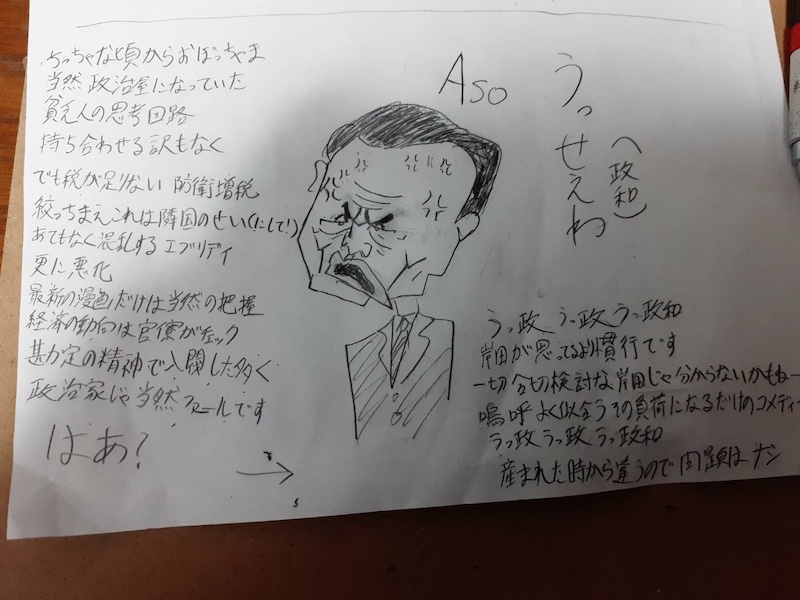 ちっちゃな頃からおぼっちゃま
当然政治屋になっていた
貧乏人の思考回路
持ち合わせる訳もなく
でも税が足りない 防衛増税
絞っちまえこれは隣国のせい(にして!)
あてもなく混乱するエブリデイ
更に悪化
最新の漫画だけは当然の把握
経済の動向は官僚がチェック
勘定の精神で入閣した多く
政治家じゃ当然のルールです
はあ?
Aso
うっせえわ
(政和)
うっ政 うっ政 うっ政和
岸田が思ってるより慣行です
一切合切検討な岸田じゃ分からないかもねー
嗚呼よく似合う その負荷になるだけのコメディー
うっ政 うっ政 うっ政和
産まれた時から違うので問題はナシ